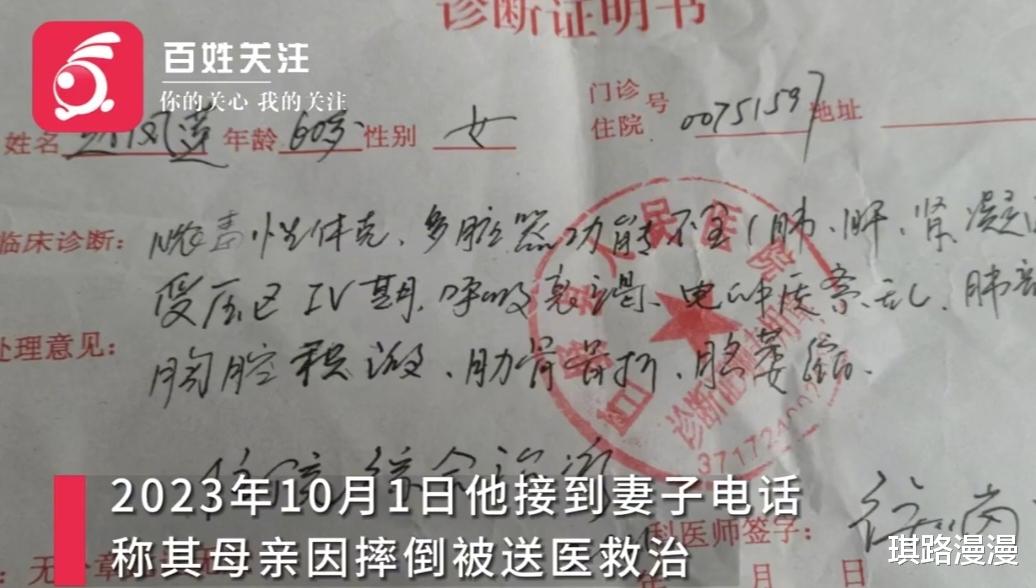 诊断证明书
百姓关注
你的关心 我的关注
姓名 凤莲 年龄 60岁 性别 女 门诊 住院 号 00751597 地址
临床诊断: 脓毒性休克、多脏器功能不全(肺、肝、肾、凝
受压区IV期、呼吸衰竭、电解质紊乱、肺部
处理意见:
胸腔积液、肋骨骨折、脑萎缩.
县人民医院
诊断证明
住院综合治疗
2023年10月1日他接到妻子电话
称其母亲因摔倒被送医救治
科医师签字:
无
月 日
琪路漫漫